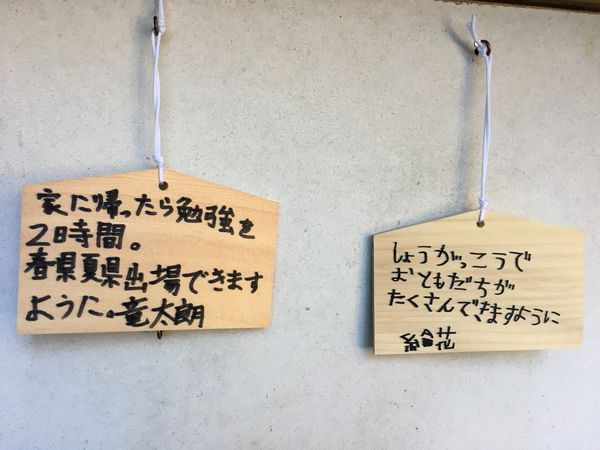 家に帰ったら勉強を
2日時間。
春県夏県出場できます
ように。竜太朗
しょうがっこうで
おともだちが
たくさんできますように
絵花